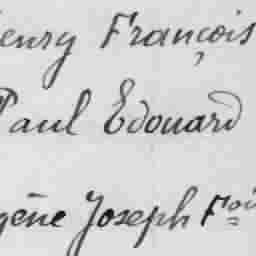 enry François
Paul Edouard
gène Joseph Foi